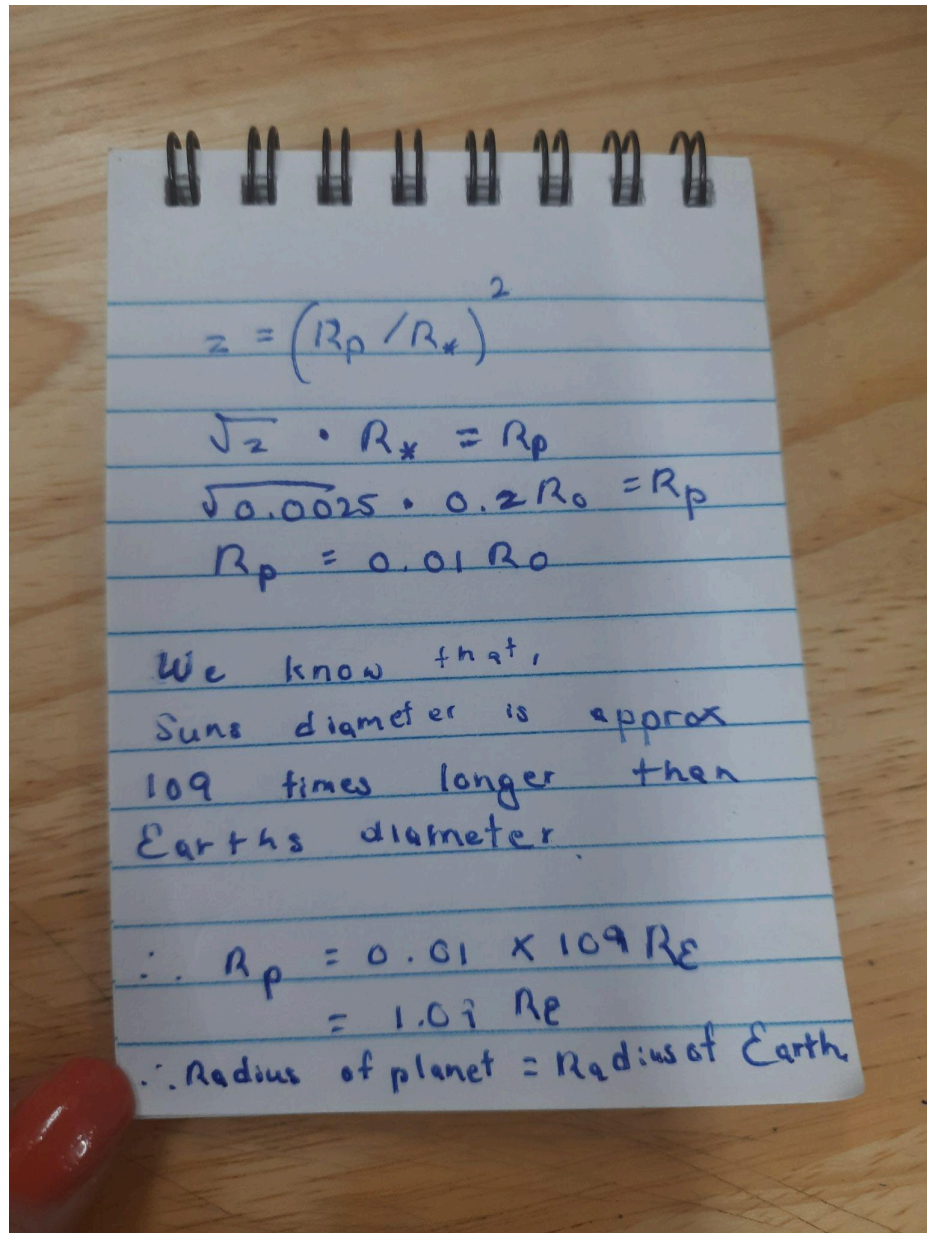 z = (Rp / R*)²
√z · R* = Rp
√0.0025 · 0.2 R₀ = Rp
Rp = 0.01 R₀
We know that,
Suns diameter is approx
109 times longer than
Earths diameter.
∴ Rp = 0.01 × 109 RE
= 1.0i Re
∴ Radius of planet = Radius of Earth.